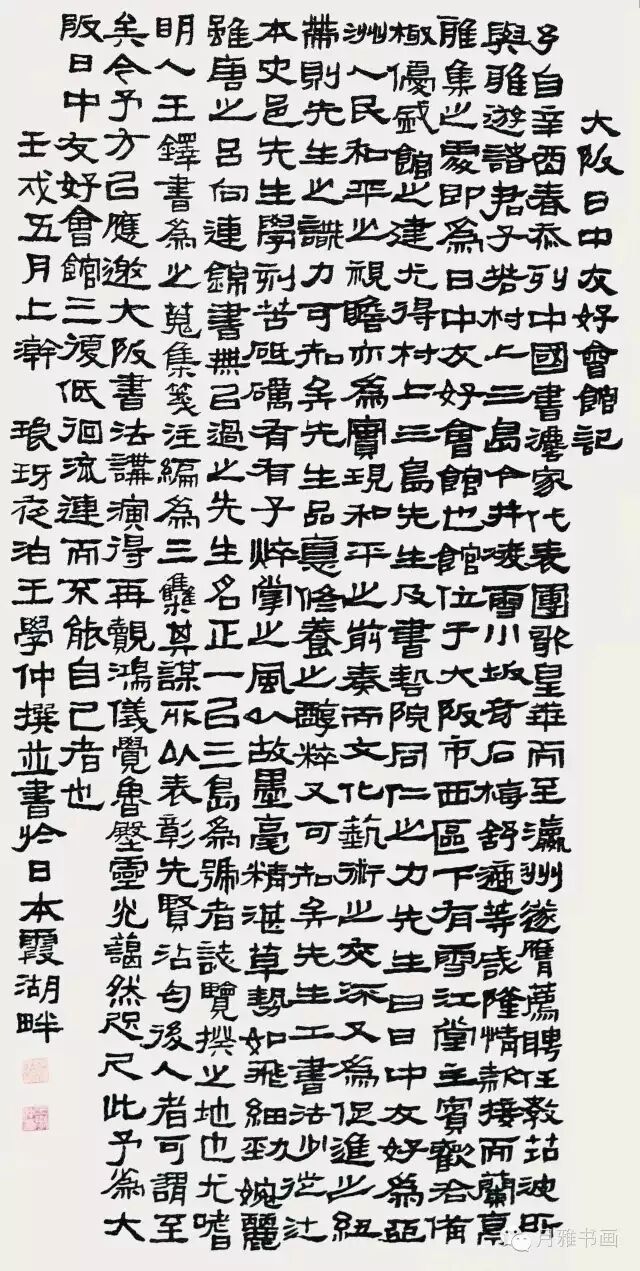 大阪日中友好會館記
予自辛酉春忝列中國書灋家代表團歌皇華而至瀛州遂膺薦聘任教茿波所
與雅遊諸君子若村上三島今井凌雪小坂奇石梅舒適等咸隆情款接而蘭亭
雅集之處即為日中友好會館也館位于大阪市西區下有雪江堂主賓歡洽備
極優盛館之建尤得村上三島先生及書藝院同仁之力先生曰日中友好為亞
洲人民和平之視瞻亦為實現和平之前奏而文化藝術之交深又為促進之紐
帶則先生之識力可知矣先生品惪修養之醇粹又可知矣先生工書法少從辻
本史邑先生學刻苦砥礪有有子焠掌之風以故墨毫精湛草勢如飛細勁婉麗
雖唐之呂向連錦書無已過之先生名正一己三島為號者誌覽揆之地也尤嗜
明人王鐸書為之蒐集箋注編為三集其謀所以表彰先賢沾匄後人者可謂至
矣今予方已應邀大阪書法講演得再覿鴻儀覺魯壁靈光藹然咫尺此予為大
阪日中友好會館三復低徊流連而不能自已者也
壬戌五月上澣 琅玡夜泊王學仲撰並書於日本霞湖畔
月雅书画